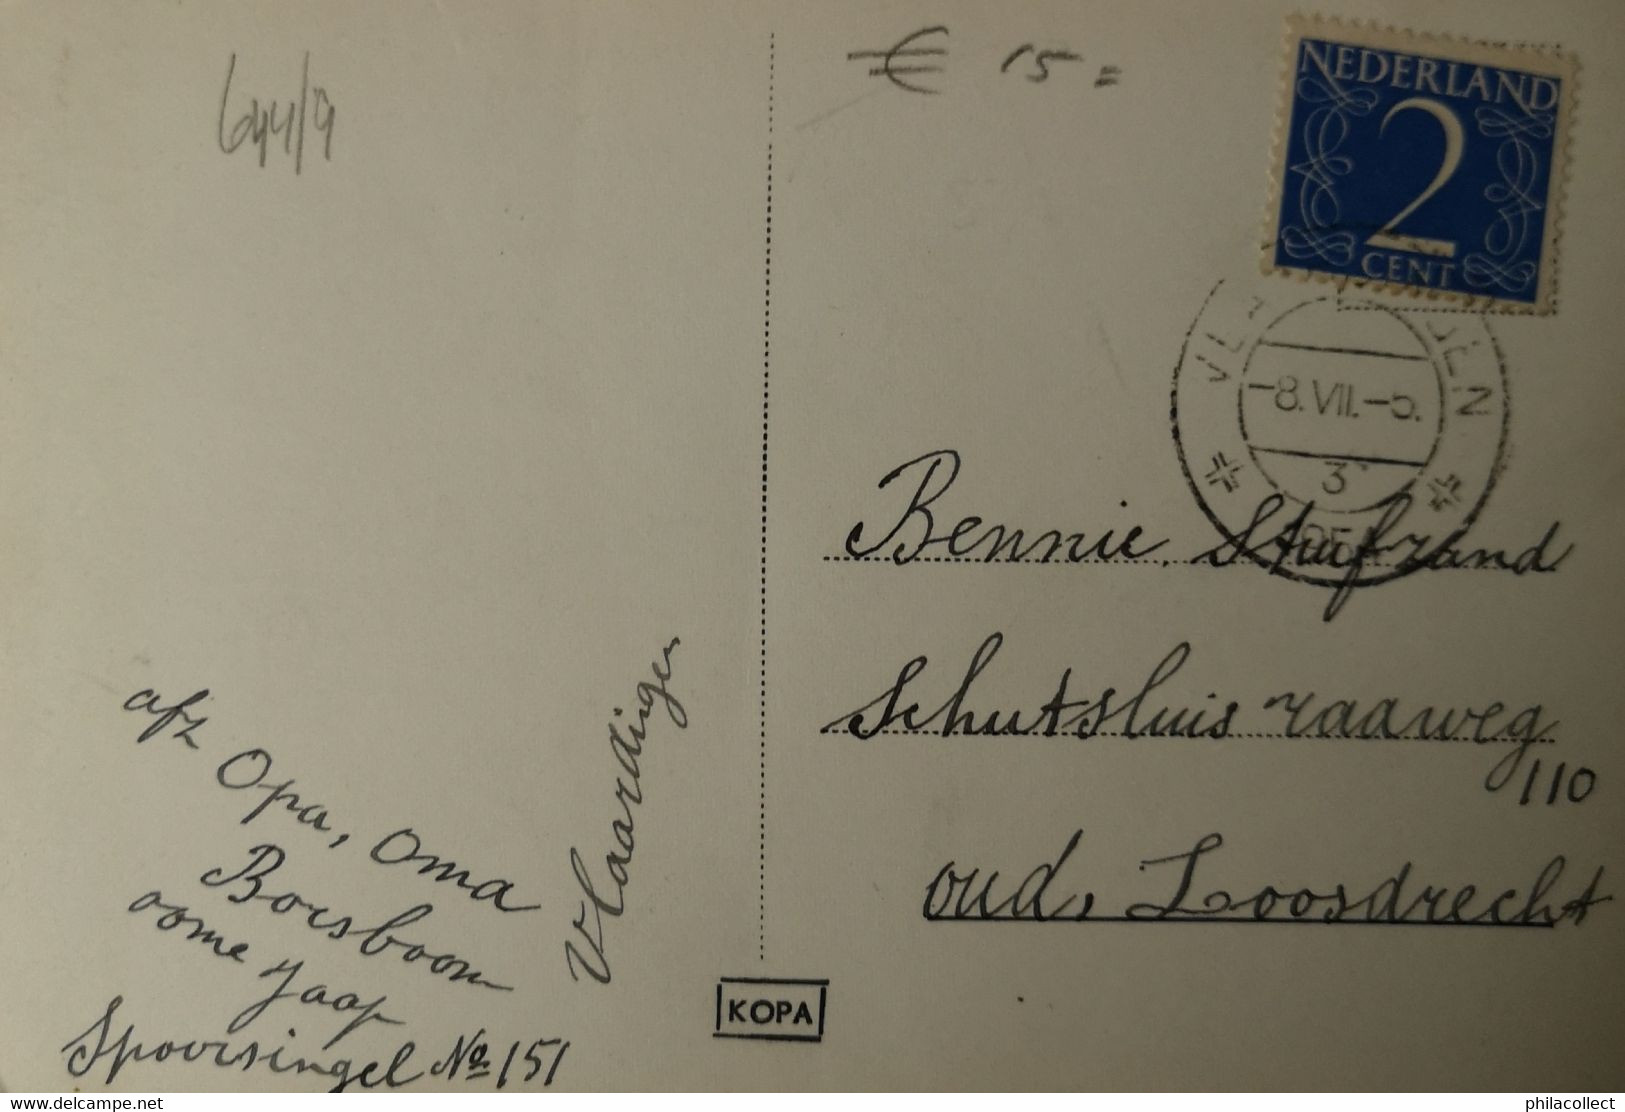 644/9
€ 15 =
NEDERLAND
2
CENT
-8.VII.-5.
3
Bennie. Stufzand
Schutsluis raaweg
110
oud, Loosdrecht
afz Opa, Oma
Borsboom
oome Jaap
Spoorsingel No 151
Vlaardingen
KOPA
www.delcampe.net
philacollect